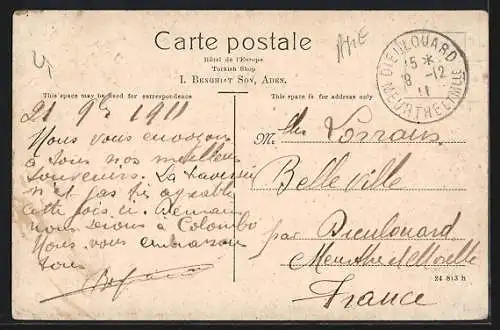 Carte postale
Hôtel de l'Europe
Turkish Shop
I. Benghiat Son, Aden.
This space may be used for correspondence
This space is for address only
DIEULOUARD
15 *
8 -12
11
MEURTHE ET M^LLE
21 9bre 1911
Nous vous envoyons
à tous nos meilleurs
souvenirs. La traversée
n'est pas très agréable
cette fois ci. Demain
nous serons à Colombo
Nous vous embrassons
tous
M Lorrain
Belleville
par Dieulouard
Meurthe et Moselle
France
24 813 h